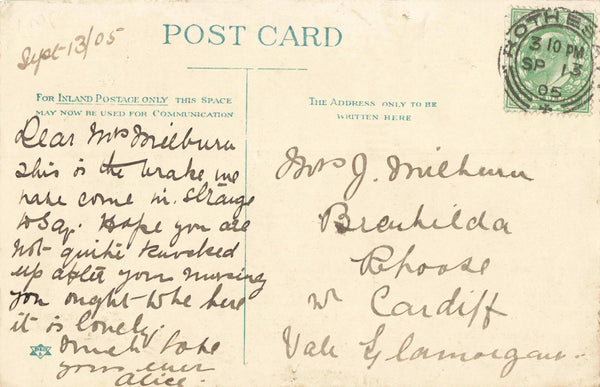 Sept 13/05
POST CARD
FOR INLAND POSTAGE ONLY THIS SPACE
MAY NOW BE USED FOR COMMUNICATION
THE ADDRESS ONLY TO BE
WRITTEN HERE
ROTHES
3 10 PM
SP 13
05
Dear Mrs Milburn
This is the brake we
have come in. Strange
to say. Hope you are
not quite knocked
up after your nursing
you ought to be here
it is lovely.
Much love
yours ever
Alice.
Mrs J. Milburn
Brenhilda
Rhoose
nr Cardiff
Vale Glamorgan